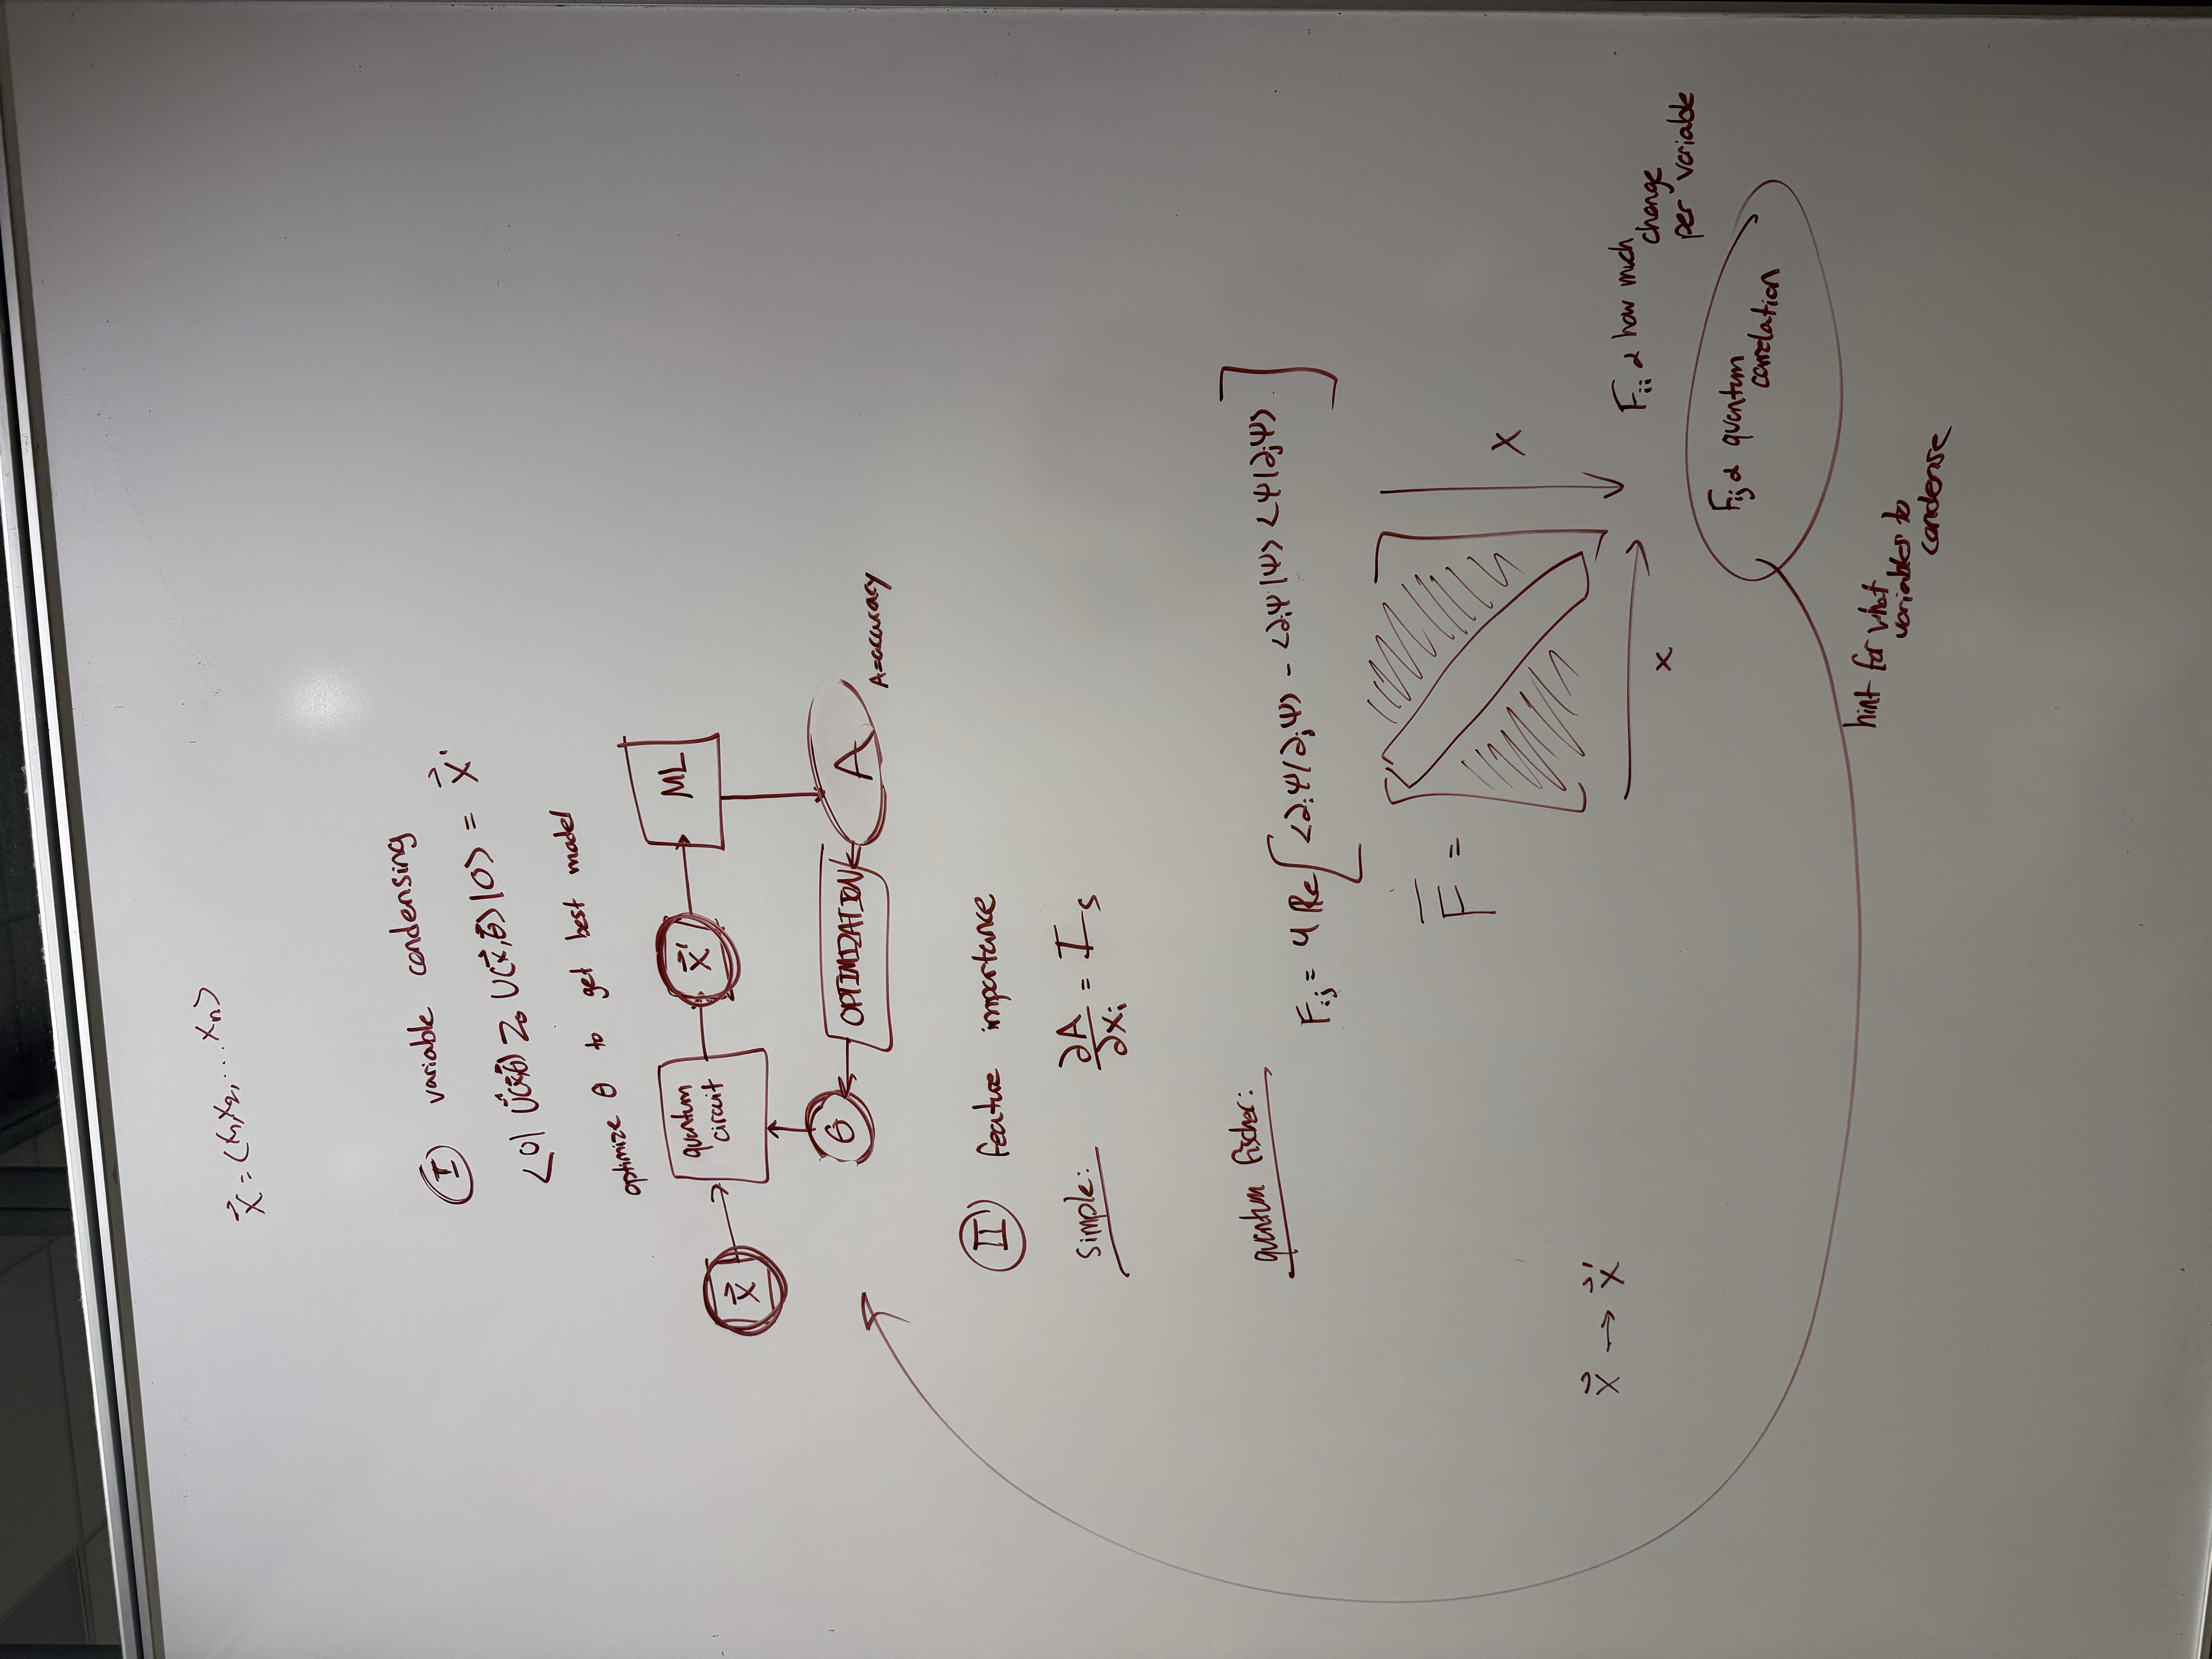 x⃗ = (x₁, x₂, ... xₙ)
Ⓘ variable condensing
<0| U†(x⃗,θ⃗) Z₀ U(x⃗,θ⃗) |0> = x⃗'
optimize θ to get best model
x⃗
quantum
circuit
x⃗'
ML
θ
OPTIMIZATION
A
A=accuracy
II feature importance
simple: ∂A/∂xᵢ = Iₛ
quantum fischer:
Fᵢⱼ = 4 Re[<∂ᵢψ|∂ⱼψ> - <∂ᵢψ|ψ><ψ|∂ⱼψ>]
F =
x
x
x⃗ → x⃗'
Fᵢᵢ α how much
change
per variable
Fᵢⱼ α quantum
correlation
hint for what
variables to
condense